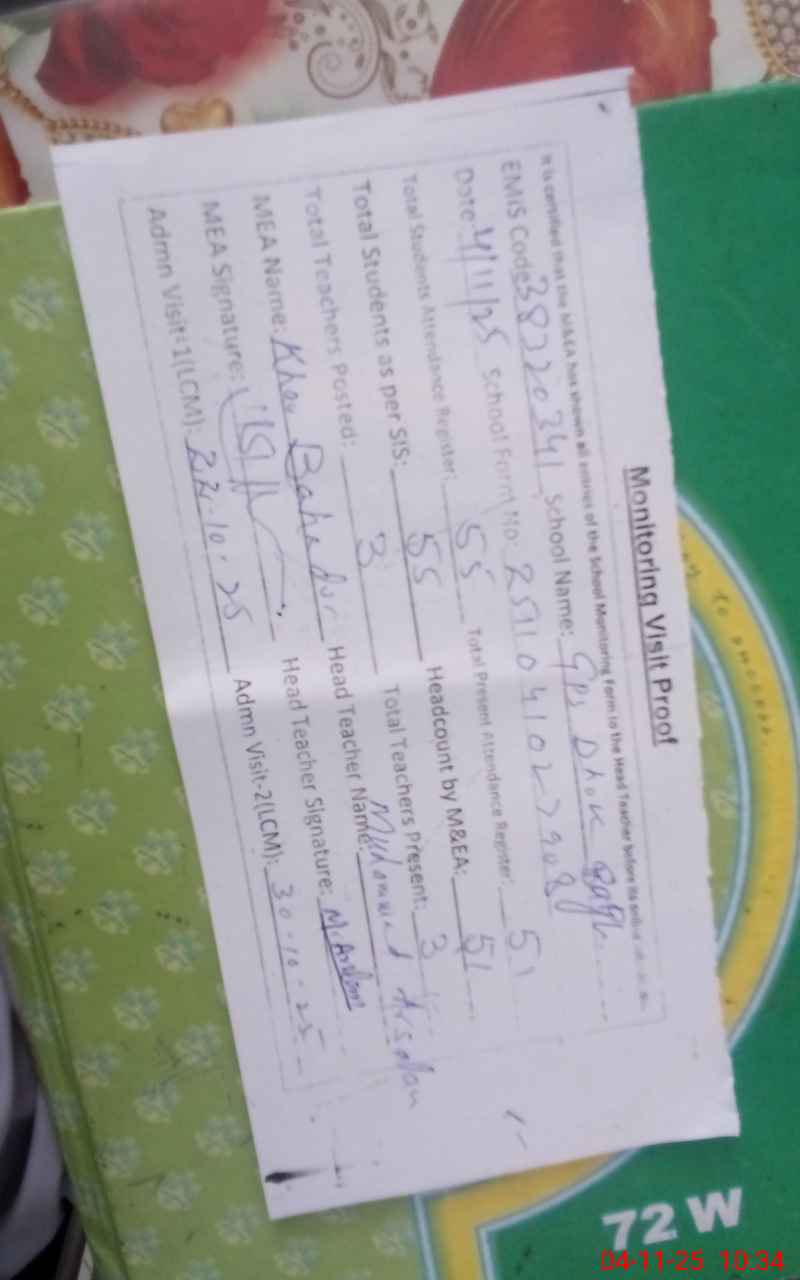 Monitoring Visit Proof
It is certified that the M&EA has shown all entries of the School Monitoring Form to the Head Teacher before its
EMIS Code: 38320341 School Name: GPS Dhok
Date: 4/11/25 School Form No:
Total Students Attendance Register: 55 Total Present Attendance Register: 51
Total Students as per SIS: 55 Headcount by M&EA: 51
Total Teachers Posted: 3 Total Teachers Present: 3
MEA Name: Khan Bahadur Head Teacher Name: Muhammad Arsalan
MEA Signature: Head Teacher Signature: M. Arslan
Admn Visit-1(LCM): 22-10-25 Admn Visit-2(LCM): 30-10-25
72 W
04-11-25 10:34